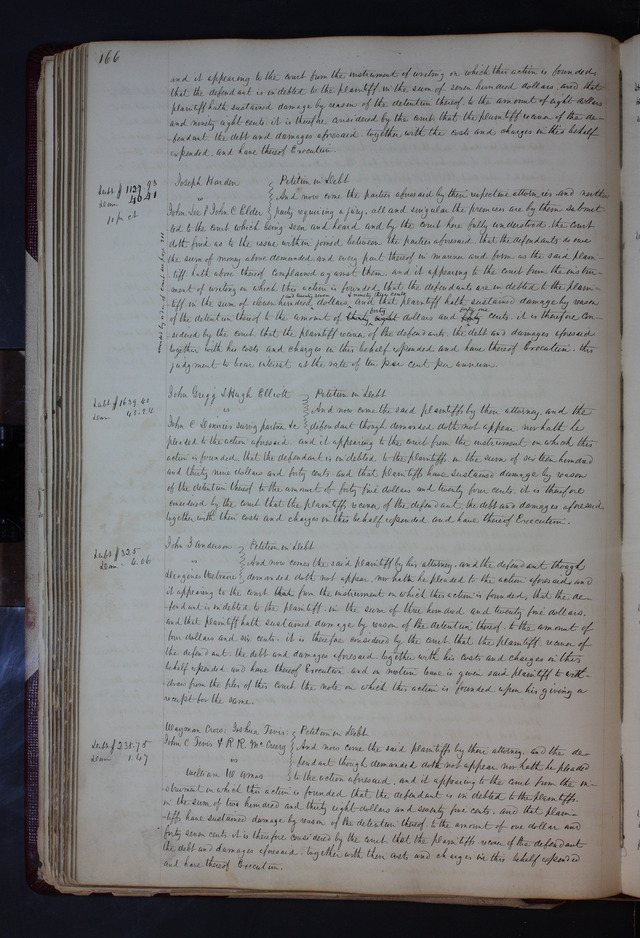 166
and it appearing to the court from the instrument of writing on which this action is founded,
that the defendant is indebted to the plaintiff in the sum of seven hundred dollars, and that
plaintiff hath sustained damage by reason of the detention thereof to the amount of eight dollars
and ninety eight cents. it is therefore considered by the court that the plaintiff recover of the de-
fendant the debt and damages aforesaid. together with the costs and charges in this behalf
expended and have thereof Execution.
Joseph Harden Petition in Debt
Debt $ 1127.93
Dam 46.41
10 pr ct
" And now come the parties aforesaid by their respective attornies and neither
John Lee & John C Elder party requiring a jury, all and singular the premises are by them submit
ted to the court which being seen and heard and by the court here fully understood. the court
doth find as to the issue within joined between the parties aforesaid that the defendants do owe
the sum of money above demanded and every part thereof in manner and form as the said plain-
tiff hath above thereof complained against them. and it appearing to the court from the instru-
ment of writing on which this action is founded, that the defendants are indebted to the plain-
and twenty seven & ninety three cents
tiff in the sum of eleven hundred dollars, and that plaintiff hath sustained damage by reason
forty forty one
of the detention thereof to the amount of thirty eight dollars and cents. it is therefore con-
sidered by the court that the plaintiff recover of the defendants the debt and damages aforesaid
together with his costs and charges in this behalf expended and have thereof Execution. this
judgment to bear interest at the rate of ten per cent per annum.
John Grigg & Hugh Elliott Petition in Debt
Debt $ 1639.40
Dam 45.24
" And now come the said plaintiffs by their attorney, and the
John C surviving partner &c defendant though demanded doth not appear nor hath he
pleaded to the action aforesaid. and it appearing to the court from the instrument on which this
action is founded, that the defendant is indebted to the plaintiffs in the sum of sixteen hundred
and thirty nine dollars and forty cents. and that plaintiffs have sustained damage by reason
of the detention thereof to the amount of forty five dollars and twenty four cents. it is therefore
considered by the court that the plaintiffs recover of the defendant the debt and damages aforesaid
together with their costs and charges in this behalf expended and have thereof Execution.
John F Anderson Petition in Debt
Debt $ 325
Dam 4.06
" And now comes the said plaintiff by his attorney. and the defendant though
demanded doth not appear nor hath he pleaded to the action aforesaid and
it appearing to the court that from the instrument on which this action is founded, that the de-
fendant is indebted to the plaintiff in the sum of three hundred and twenty five dollars.
and that plaintiff hath sustained damage by reason of the detention thereof to the amount of
four dollars and six cents. it is therefore considered by the court that the plaintiff recover of
the defendant the debt and damages aforesaid together with his costs and charges in this
behalf expended and have thereof Execution. and on motion leave is given said plaintiff to with-
draw from the files of this court the note on which this action is founded upon his giving a
receipt for the same.
Wayman Crow Joshua Tevis Petition in Debt
Debt $ 238.75
Dam 1.47
John C Tevis & R R McCreery And now come the said plaintiffs by their attorney. and the de-
" fendant though demanded doth not appear nor hath he pleaded
William W to the action aforesaid. and it appearing to the court from the in-
strument on which this action is founded that the defendant is indebted to the plaintiffs
in the sum of two hundred and thirty eight dollars and seventy five cents. and that plain-
tiffs have sustained damage by reason of the detention thereof to the amount of one dollar and
forty seven cents it is therefore considered by the court that the plaintiffs recover of the defendant
the debt and damages aforesaid. together with their costs and charges in this behalf expended
and have thereof Execution.